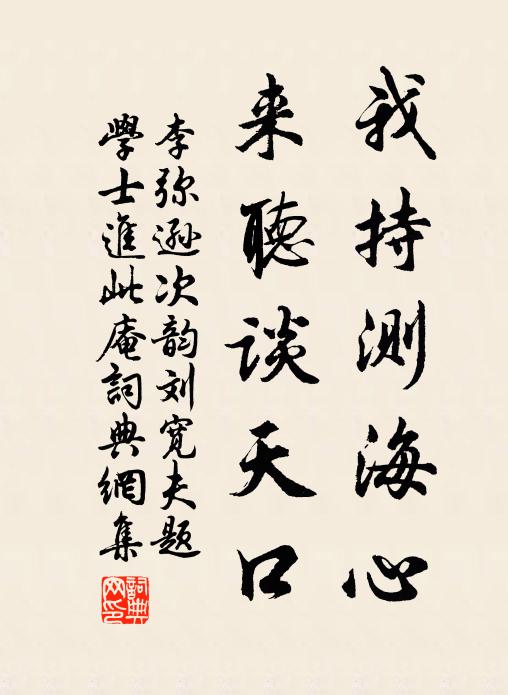 我持测海心
来聽谈天口
李弥逊次韵刘宽夫题
學士進此庵詞典網集
詞典网印